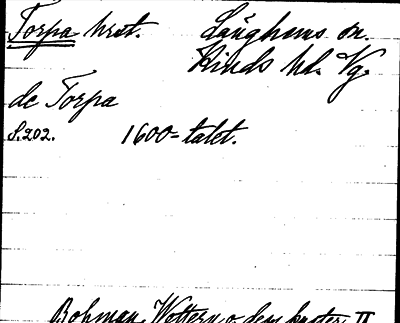 Torpa hrst. Länghems sn.
Kinds hd. Vg.
de Torpa
S.202. 1600-talet.
Bohman, Wettern o. dess kuster II